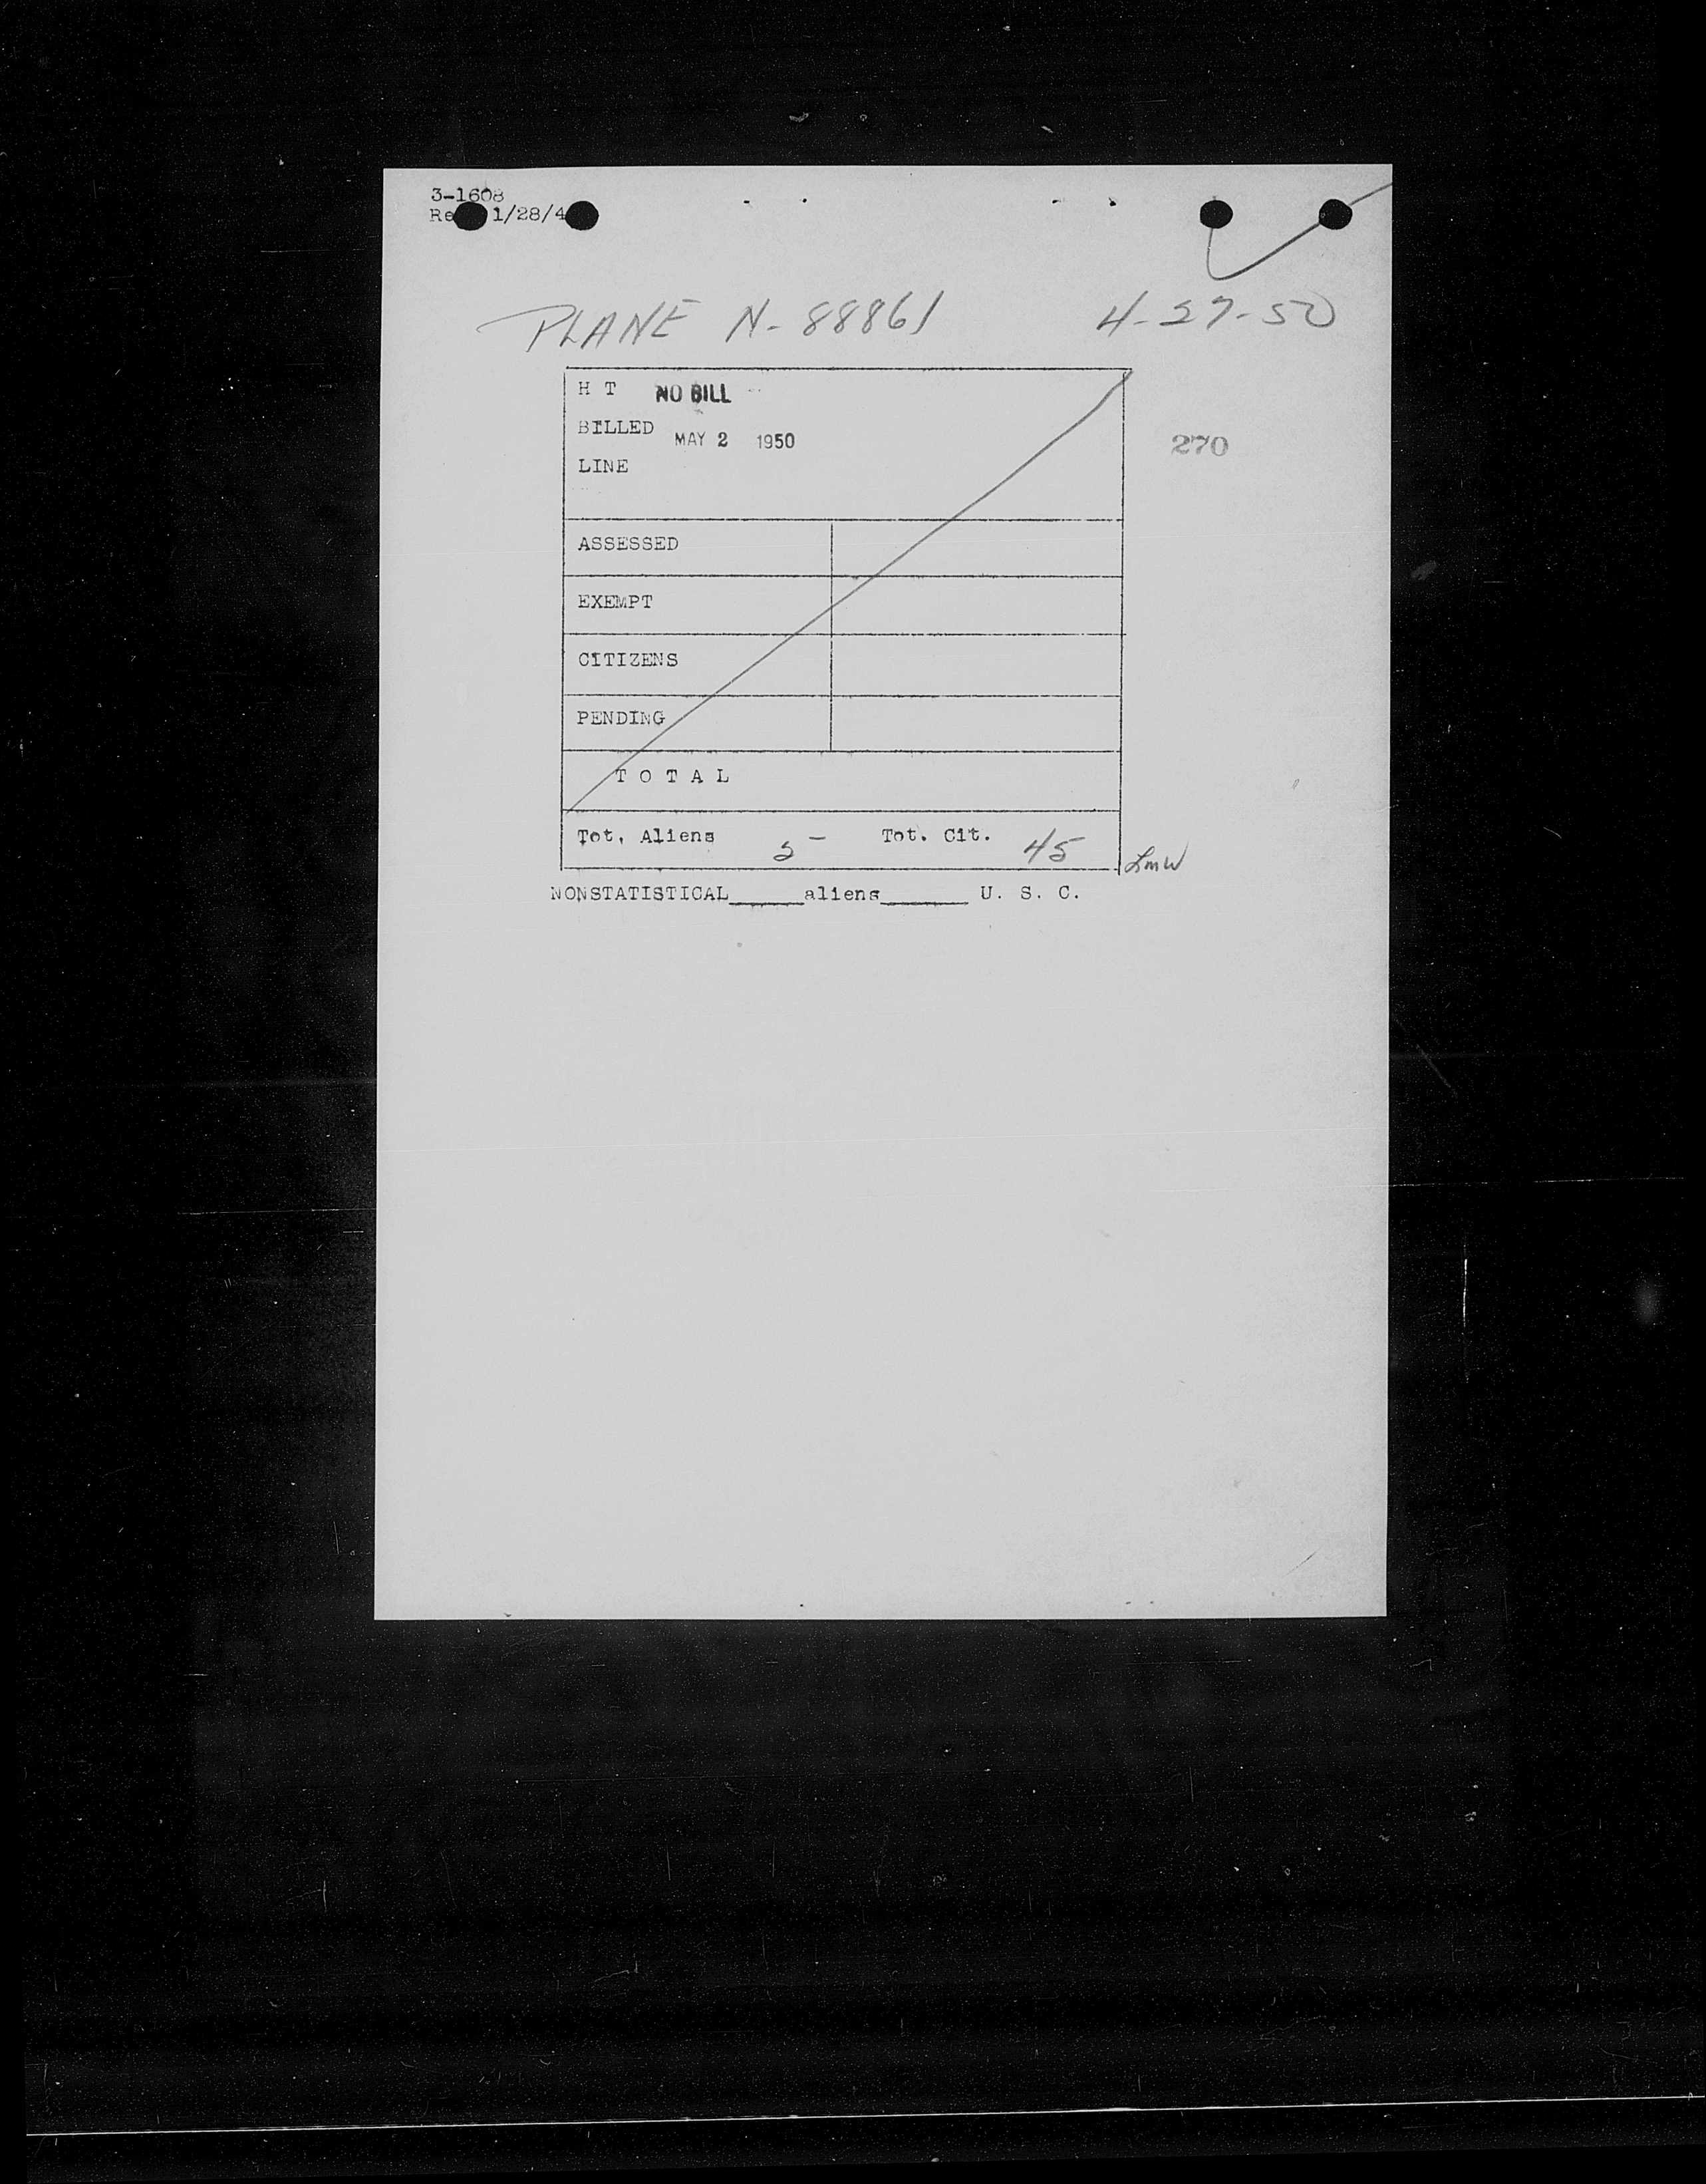 3-1608
Re 1/28/4
PLANE N-88861 4-27-50
H T NO BILL
BILLED MAY 2 1950
270
LINE
ASSESSED
EXEMPT
CITIZENS
PENDING
T O T A L
Tot. Aliens 5 - Tot. Cit. 45
LmW
NONSTATISTICAL______aliens_______ U. S. C.